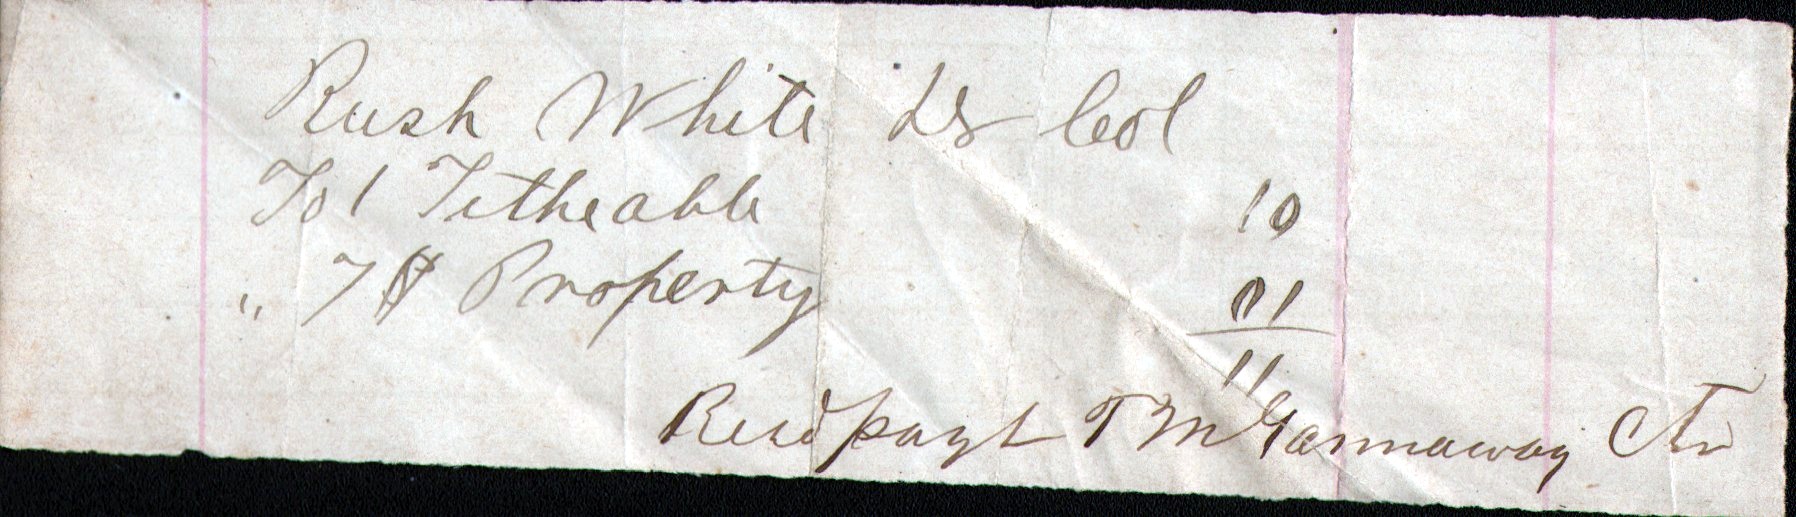 Rush White Dr Col
To 1 Titheable 10
" 7$ Property 01
11
Recd payt T M Gannaway Clr